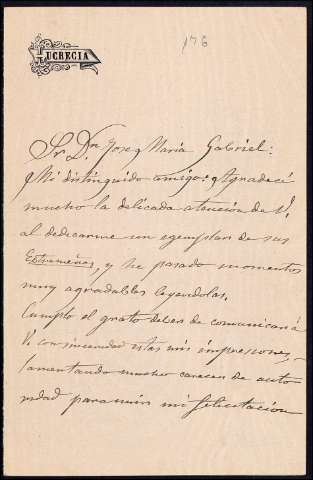 LUCRECIA
176
Sr. Dn. Jose Maria Gabriel:
Mi distinguido amigo: Agradecí
mucho la delicada atencion de V.
al dedicarme un ejemplar de sus
Extremeñas, y he pasado momentos
muy agradables leyendolas.
Cumplo el grato deber de comunicar á
V. con sinceridad estas mis impresiones,
lamentando mucho carecer de auto-
ridad para unir mi felicitación